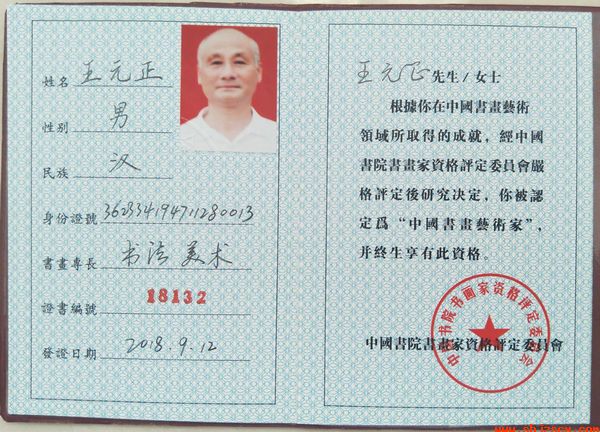 姓名 王元正
性别 男
民族 汉
身份證號 362334194711280013
書畫專長 书法 美术
證書編號 18132
發證日期 2018.9.12
王元正 先生/女士
根據你在中國書畫藝術
領域所取得的成就，經中國
書院書畫家資格評定委員會嚴
格評定後研究决定，你被認
定爲“中國書畫藝術家”，
并終生享有此資格。
中國書院書畫家資格評定委員會
中国书院书画家资格评定委员会